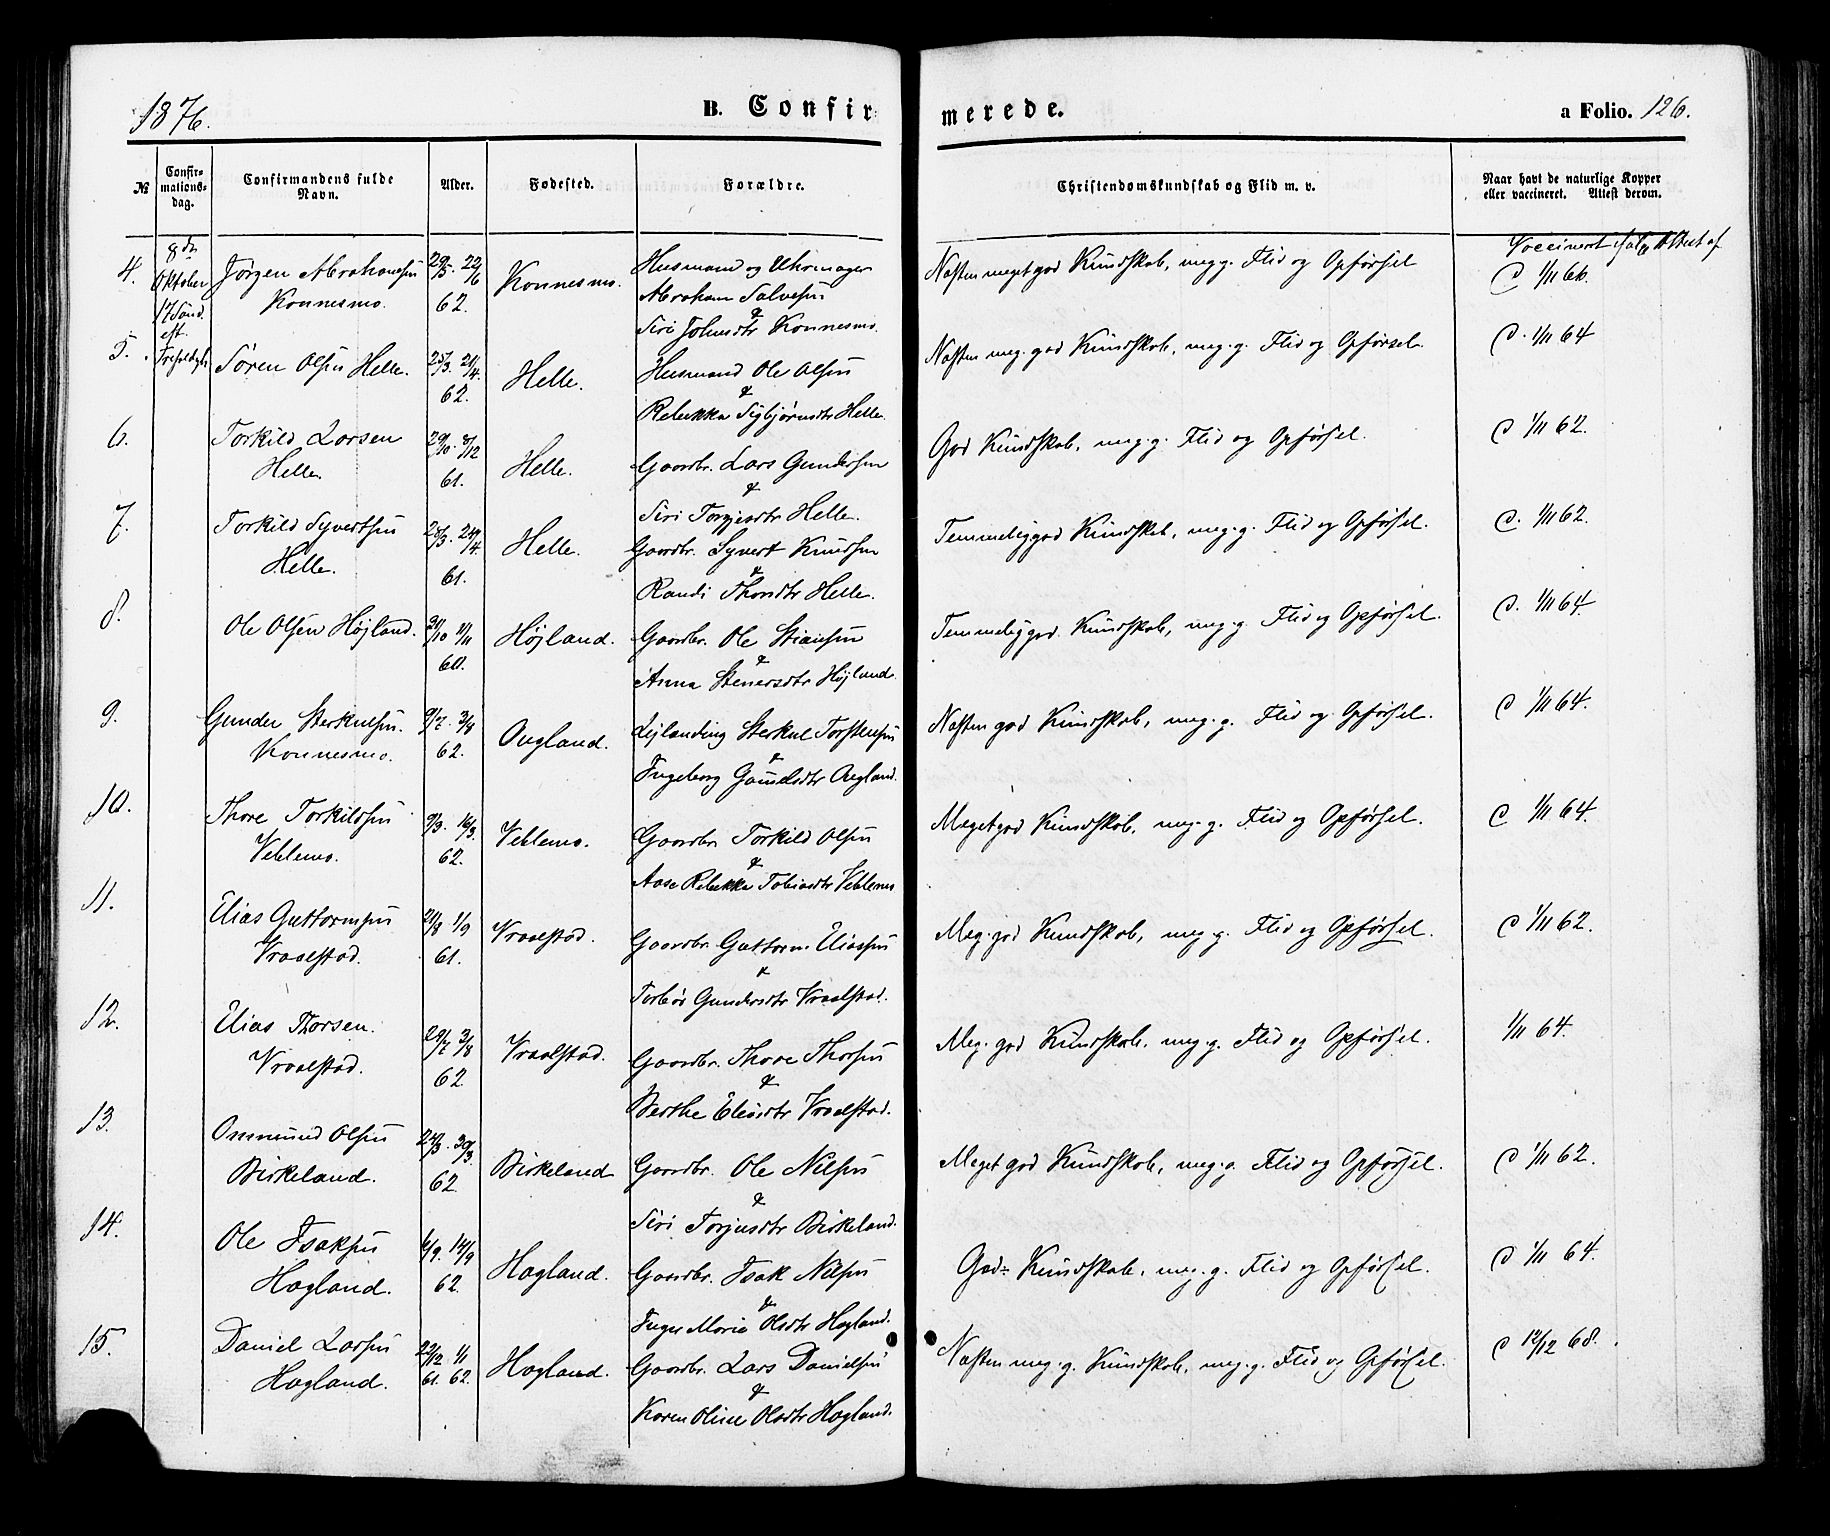 1876.
B. Confirmerede.
a Folio. 126.
№
Confirmations-dag.
Confirmandens fulde Navn.
Alder.
Fødested.
Forældre.
Christendomskundskab og Flid m. v.
Naar havt de naturlige Kopper eller vaccineret. Attest derom.
8de Oktober 17 Sønd. eft. Trefoldigh.
Vaccinert ifølge Attest af
4. Jørgen Abrahamsen 29/5. 22/6 Konnesmo. Husmand og Uhrmager Næsten megetgod Kundskab, meg g. Flid og Opførsel
Konnesmo. 62. Abraham Salvesen
&
Siri Johnsdtr Konnesmo.
5. Søren Olsen Helle. 25/3. 21/4. Helle. Husmand Ole Olsen Næsten meg. god Kundskab, meg. g. Flid og Opførsel. d. 1/11 64
62. &
Rebekka Sigbjørnsdtr Helle.
6. Torkild Larsen 29/10. 8/12 Helle. Gaardbr. Lars Gundersen God Kundskab, meg. g. Flid og Opførsel. d 1/11 62.
Helle. 61. &
Siri Torgjesdtr Helle.
7. Torkild Syvertsen 28/3. 24/4 Helle. Gaardbr. Syvert Knudsen Temmeliggod Kundskab, meg. g. Flid og Opførsel. d. 1/11 62.
Helle. 61. &
Randi Thorsdtr Helle.
8. Ole Olsen Højland. Højland. Gaardbr. Ole Stiansen Temmeliggod. Kundskab, meg. g. Flid og Opførsel. d. 1/11 64.
60. &
Anna Stenersdtr Højland.
9. Gunder Sterkulsen. 9/7. 3/8 Augland. Lejlænding Sterkul Torstensen Næsten god Kundskab, meg. g. Flid og Opførsel. d 1/11 64.
Konnesmo. 62. &
Ingeborg Gamelsdtr Augland.
10. Thore Torkildsen 9/3. 16/3. Veblemo. Gaardbr. Torkild Olsen Megetgod Kundskab, meg. g. Flid og Opførsel. d 1/11 64.
Veblemo. 62. &
Aase Rebekka Tobiasdtr Veblemo
11. Elias Guttormsen 21/8 1/9 Vraalstad. Gaardbr. Guttorm Eliassen Meg. god Kundskab, meg. g. Flid og Opførsel. d 1/11 62.
Vraalstad. 61. &
Torbør Gundersdtr Vraalstad.
12. Elias Thorsen. 29/7 3/8 Vraalstad. Gaardbr. Thore Thorsen Meg. god Kundskab. meg. g. Flid og Opførsel. 1/11 64.
Vraalstad. 62 &
Berthe Eliasdtr Vraalstad.
13. Ommund Olsen 24/3. 30/3. Birkeland Gaardbr. Ole Nilsen Meget god Kundskab, meg. g. Flid og Opførsel. d 1/11 62.
Birkeland. 62 &
Siri Torjusdtr Birkeland.
14. Ole Isaksen 6/9. 14/9 Hagland. Gaardbr. Isak Nilsen God Kundskab, meg. g. Flid og Opførsel. d 1/11 64.
Hagland. 62. &
Inger Marie Olsdtr Hagland.
15. Daniel Larsen 29/12 1/1 Hagland. Gaardbr. Lars Danielsen Næsten meg. g. Kundskab, meg. g. Flid og Opførsel. d 12/12 68.
Hagland. 61. 62. &
Karen Oline Olsdtr Hagland.